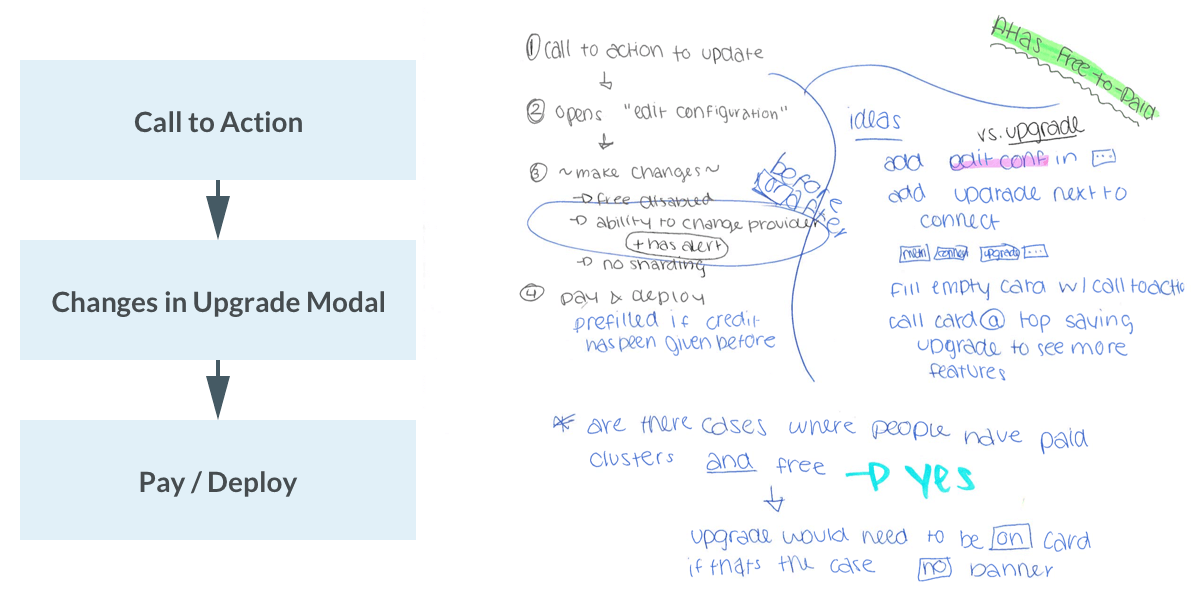 Call to Action
Changes in Upgrade Modal
Pay / Deploy
① call to action to update
② opens "edit configuration"
③ ~make changes~
→ free disabled
→ ability to change provider
+has alert
→ no sharding
before
or after
④ pay & deploy
prefilled if credit
has been given before
Atlas Free-to-Paid
ideas
vs. upgrade
add edit conf in ...
add upgrade next to
connect
metri connect upgrade ...
fill empty card w/ call to actio
call card @ top saying
upgrade to see more
features
* are there cases where people have paid
clusters and free → yes
upgrade would need to be on card
if thats the case no banner